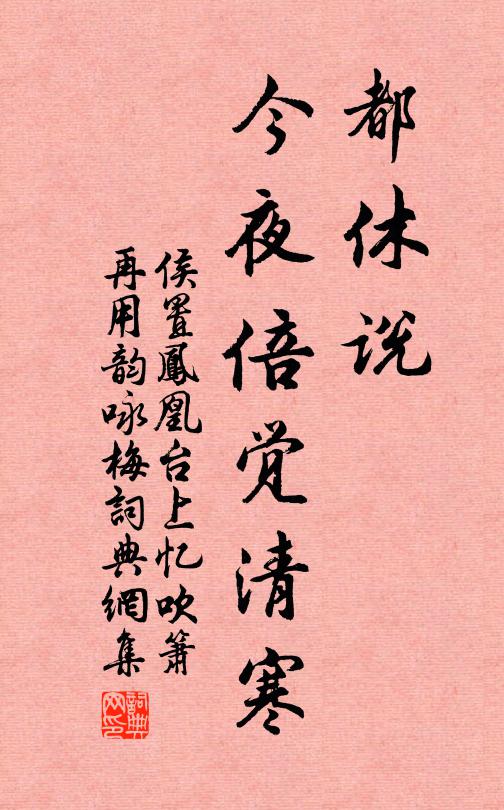 都休说
今夜倍觉清寒
侯置鳳凰台上忆吹箫
再用韵咏梅詞典網集
詞典网印